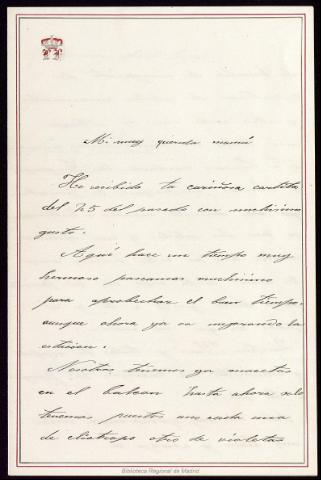 Mi muy querida mamá
He recibido tu cariñosa cartita
del 25 del pasado con muchisimo
gusto.
Aquí hace un tiempo muy
hermoso paseamos muchisimo
para aprobechar el buen tiempo.
aunque ahora ya va mejorando la
estacion.
Nosotras tenemos ya macetas
en el balcon hasta ahora solo
tenemos puestos una
de eliotropo otro de violetas
Biblioteca Regional de Madrid